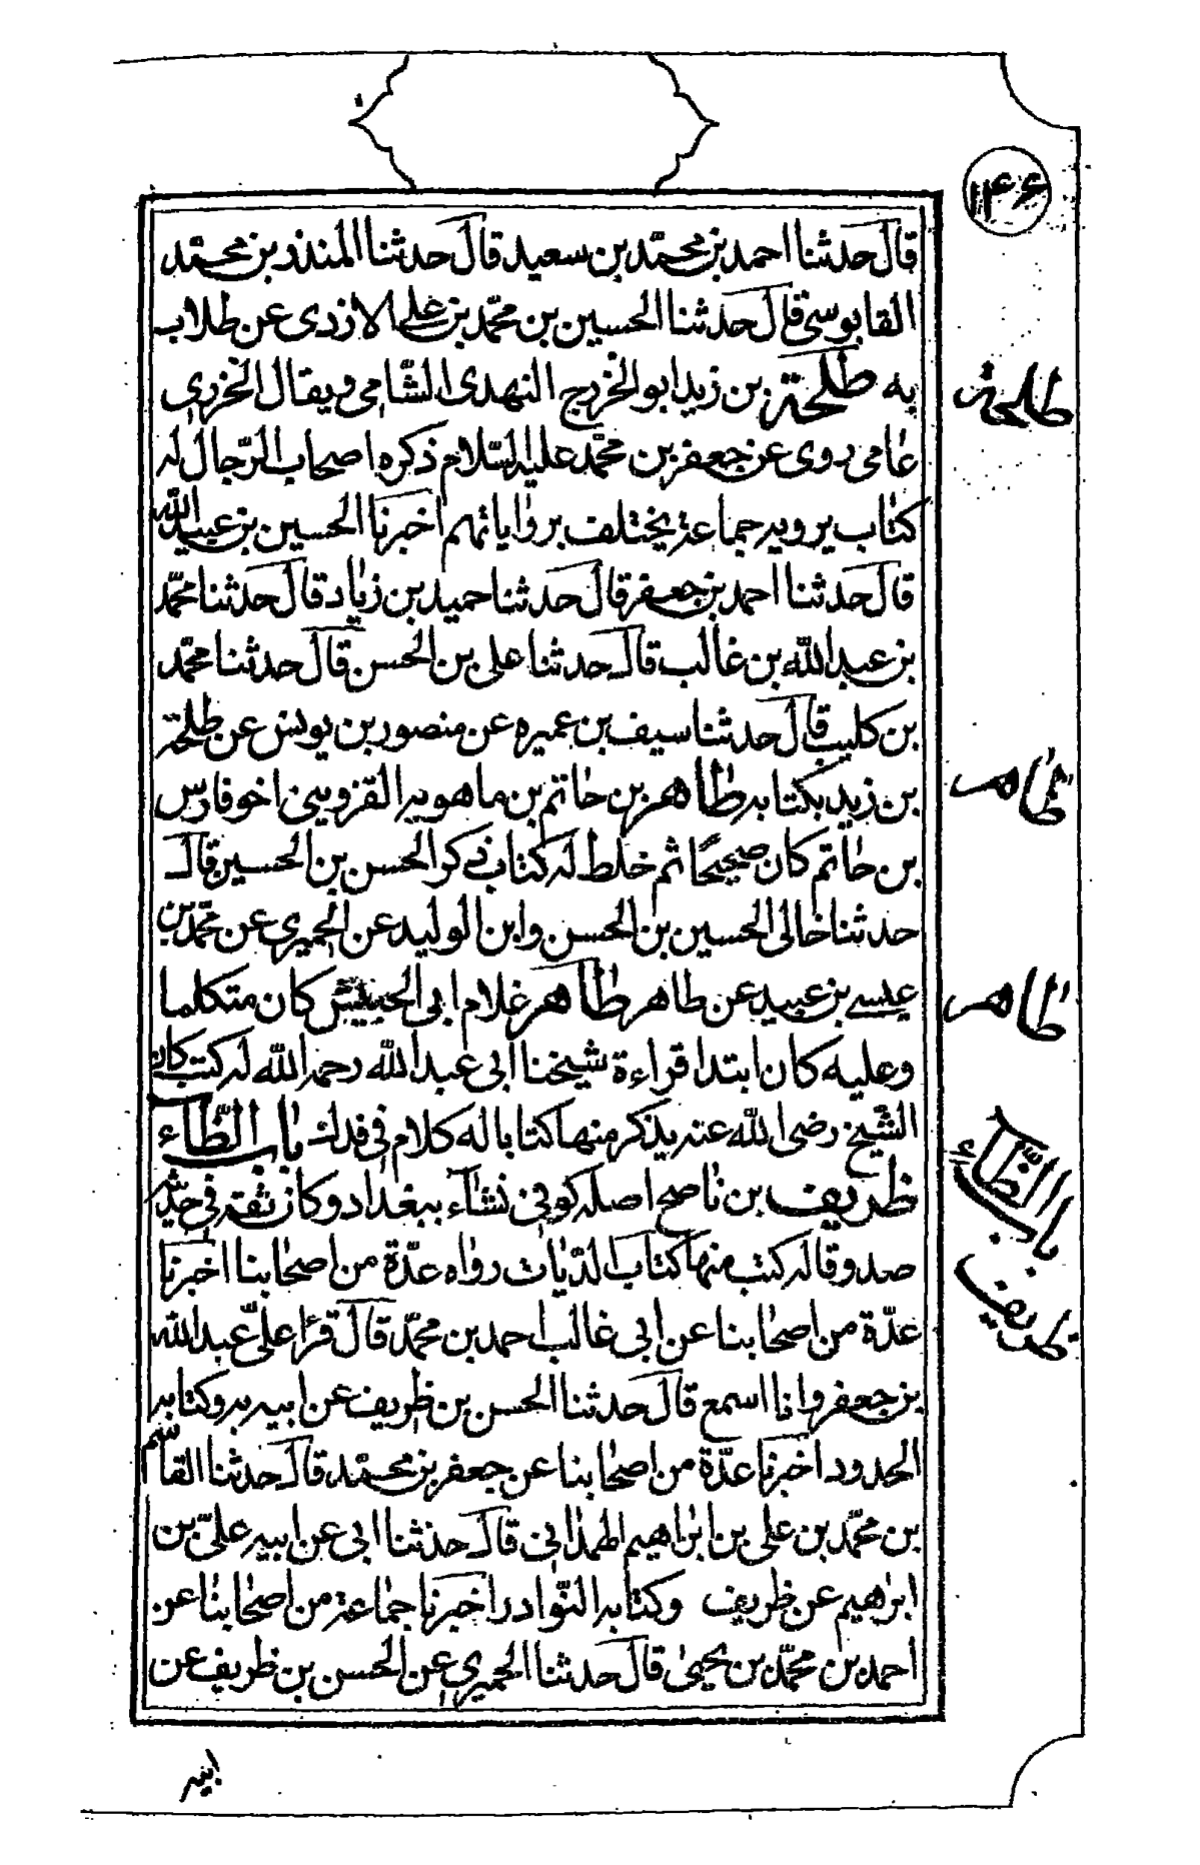 ۱۴۶
قال حدثنا احمد بن محمّد بن سعيد قال حدثنا المنذر بن محمّد
القابوسى قال حدثنا الحسين بن محمّد بن على الازدى عن طلاب
به طلحة بن زيد ابو الخزرج النهدى الشّامى ويقال الخزرى
طلحة
عامى روى عن جعفر بن محمّد عليه السّلام ذكره اصحاب الرّجال له
كتاب يرويه جماعة يختلف برواياتهم اخبرنا الحسين بن عبيد الله
قال حدثنا احمد بن جعفر قال حدثنا حميد بن زياد قال حدثنا محمّد
بن عبد الله بن غالب قال حدثنا على بن الحسن قال حدثنا محمّد
بن كليب قال حدثنا سيف بن عميره عن منصور بن يونس عن طلحة
بن زيد بكتابه طاهر بن حاتم بن ماهويه القزوينى اخو فارس
طاهر
بن حاتم كان صحيحًا ثم خلط له كتاب ذكر الحسن بن الحسين قال
حدثنا خالى الحسين بن الحسن وابن الوليد عن الحميرى عن محمّد بن
عيسى بن عبيد عن طاهر طاهر غلام ابى الحبيش كان متكلما
طاهر
وعليه كان ابتدا قراءة شيخنا ابى عبد الله رحمه الله له كتب كان
الشّيخ رضى الله عنه يذكر منها كتابا له كلام فى فدك باب الظّاء
باب الظّاء
ظريف بن ناصح اصله كوفى نشاء ببغداد وكان ثقة فى حديثه
ظريف
صدوقا له كتب منها كتاب الدّيات رواه عدّة من اصحابنا اخبرنا
عدّة من اصحابنا عن ابى غالب احمد بن محمّد قال قرأ علىّ عبد الله
بن جعفر وانا اسمع قال حدثنا الحسن بن ظريف عن ابيه به وكتابه
الحدود اخبرنا عدّة من اصحابنا عن جعفر بن محمّد قال حدثنا القاسم
بن محمّد بن على بن ابراهيم الهمذانى قال حدثنا ابى عن ابيه علىّ بن
ابراهيم عن ظريف وكتابه النّوادر اخبرنا جماعة من اصحابنا عن
احمد بن محمّد بن يحيى قال حدثنا الحميرى عن الحسن بن ظريف عن
ابيه